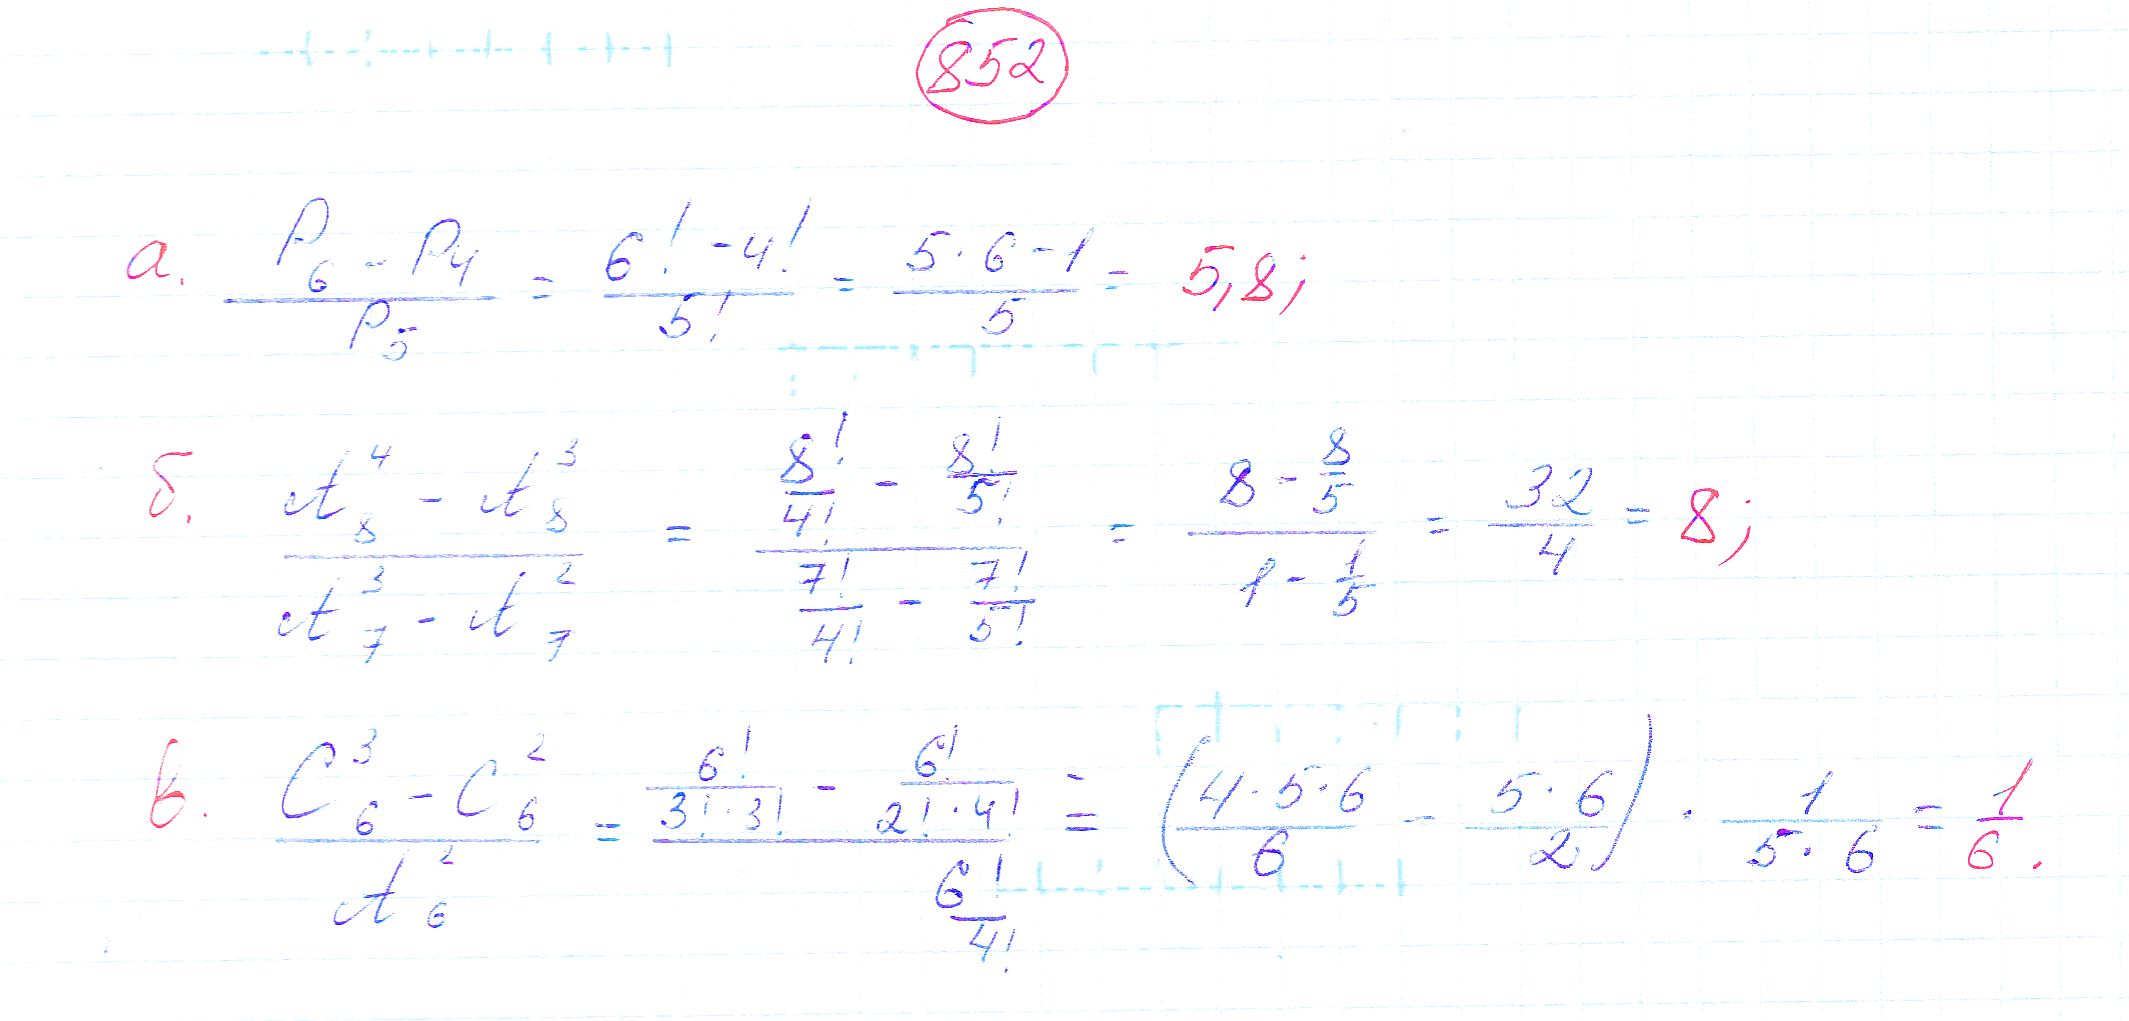 852
а. (P₆ - P₄)/P₅ = (6! - 4!)/5! = (5·6 - 1)/5 = 5,8;
б. (A₈⁴ - A₈³)/(A₇³ - A₇²) = (8!/4! - 8!/5!)/(7!/4! - 7!/5!) = (8 - 8/5)/(1 - 1/5) = 32/4 = 8;
в. (C₆³ - C₆²)/A₆² = (6!/(3!·3!) - 6!/(2!·4!))/(6!/4!) = ((4·5·6)/6 - (5·6)/2) · 1/(5·6) = 1/6.